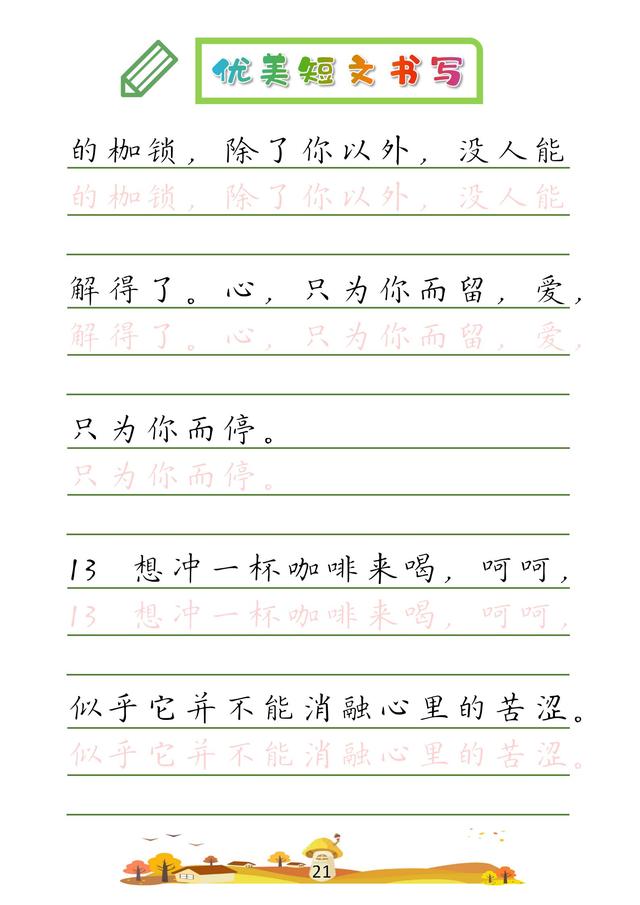 优美短文书写
的枷锁，除了你以外，没人能
的枷锁，除了你以外，没人能
解得了。心，只为你而留，爱，
解得了。心，只为你而留，爱，
只为你而停。
只为你而停。
13 想冲一杯咖啡来喝，呵呵，
13 想冲一杯咖啡来喝，呵呵，
似乎它并不能消融心里的苦涩。
似乎它并不能消融心里的苦涩。
21